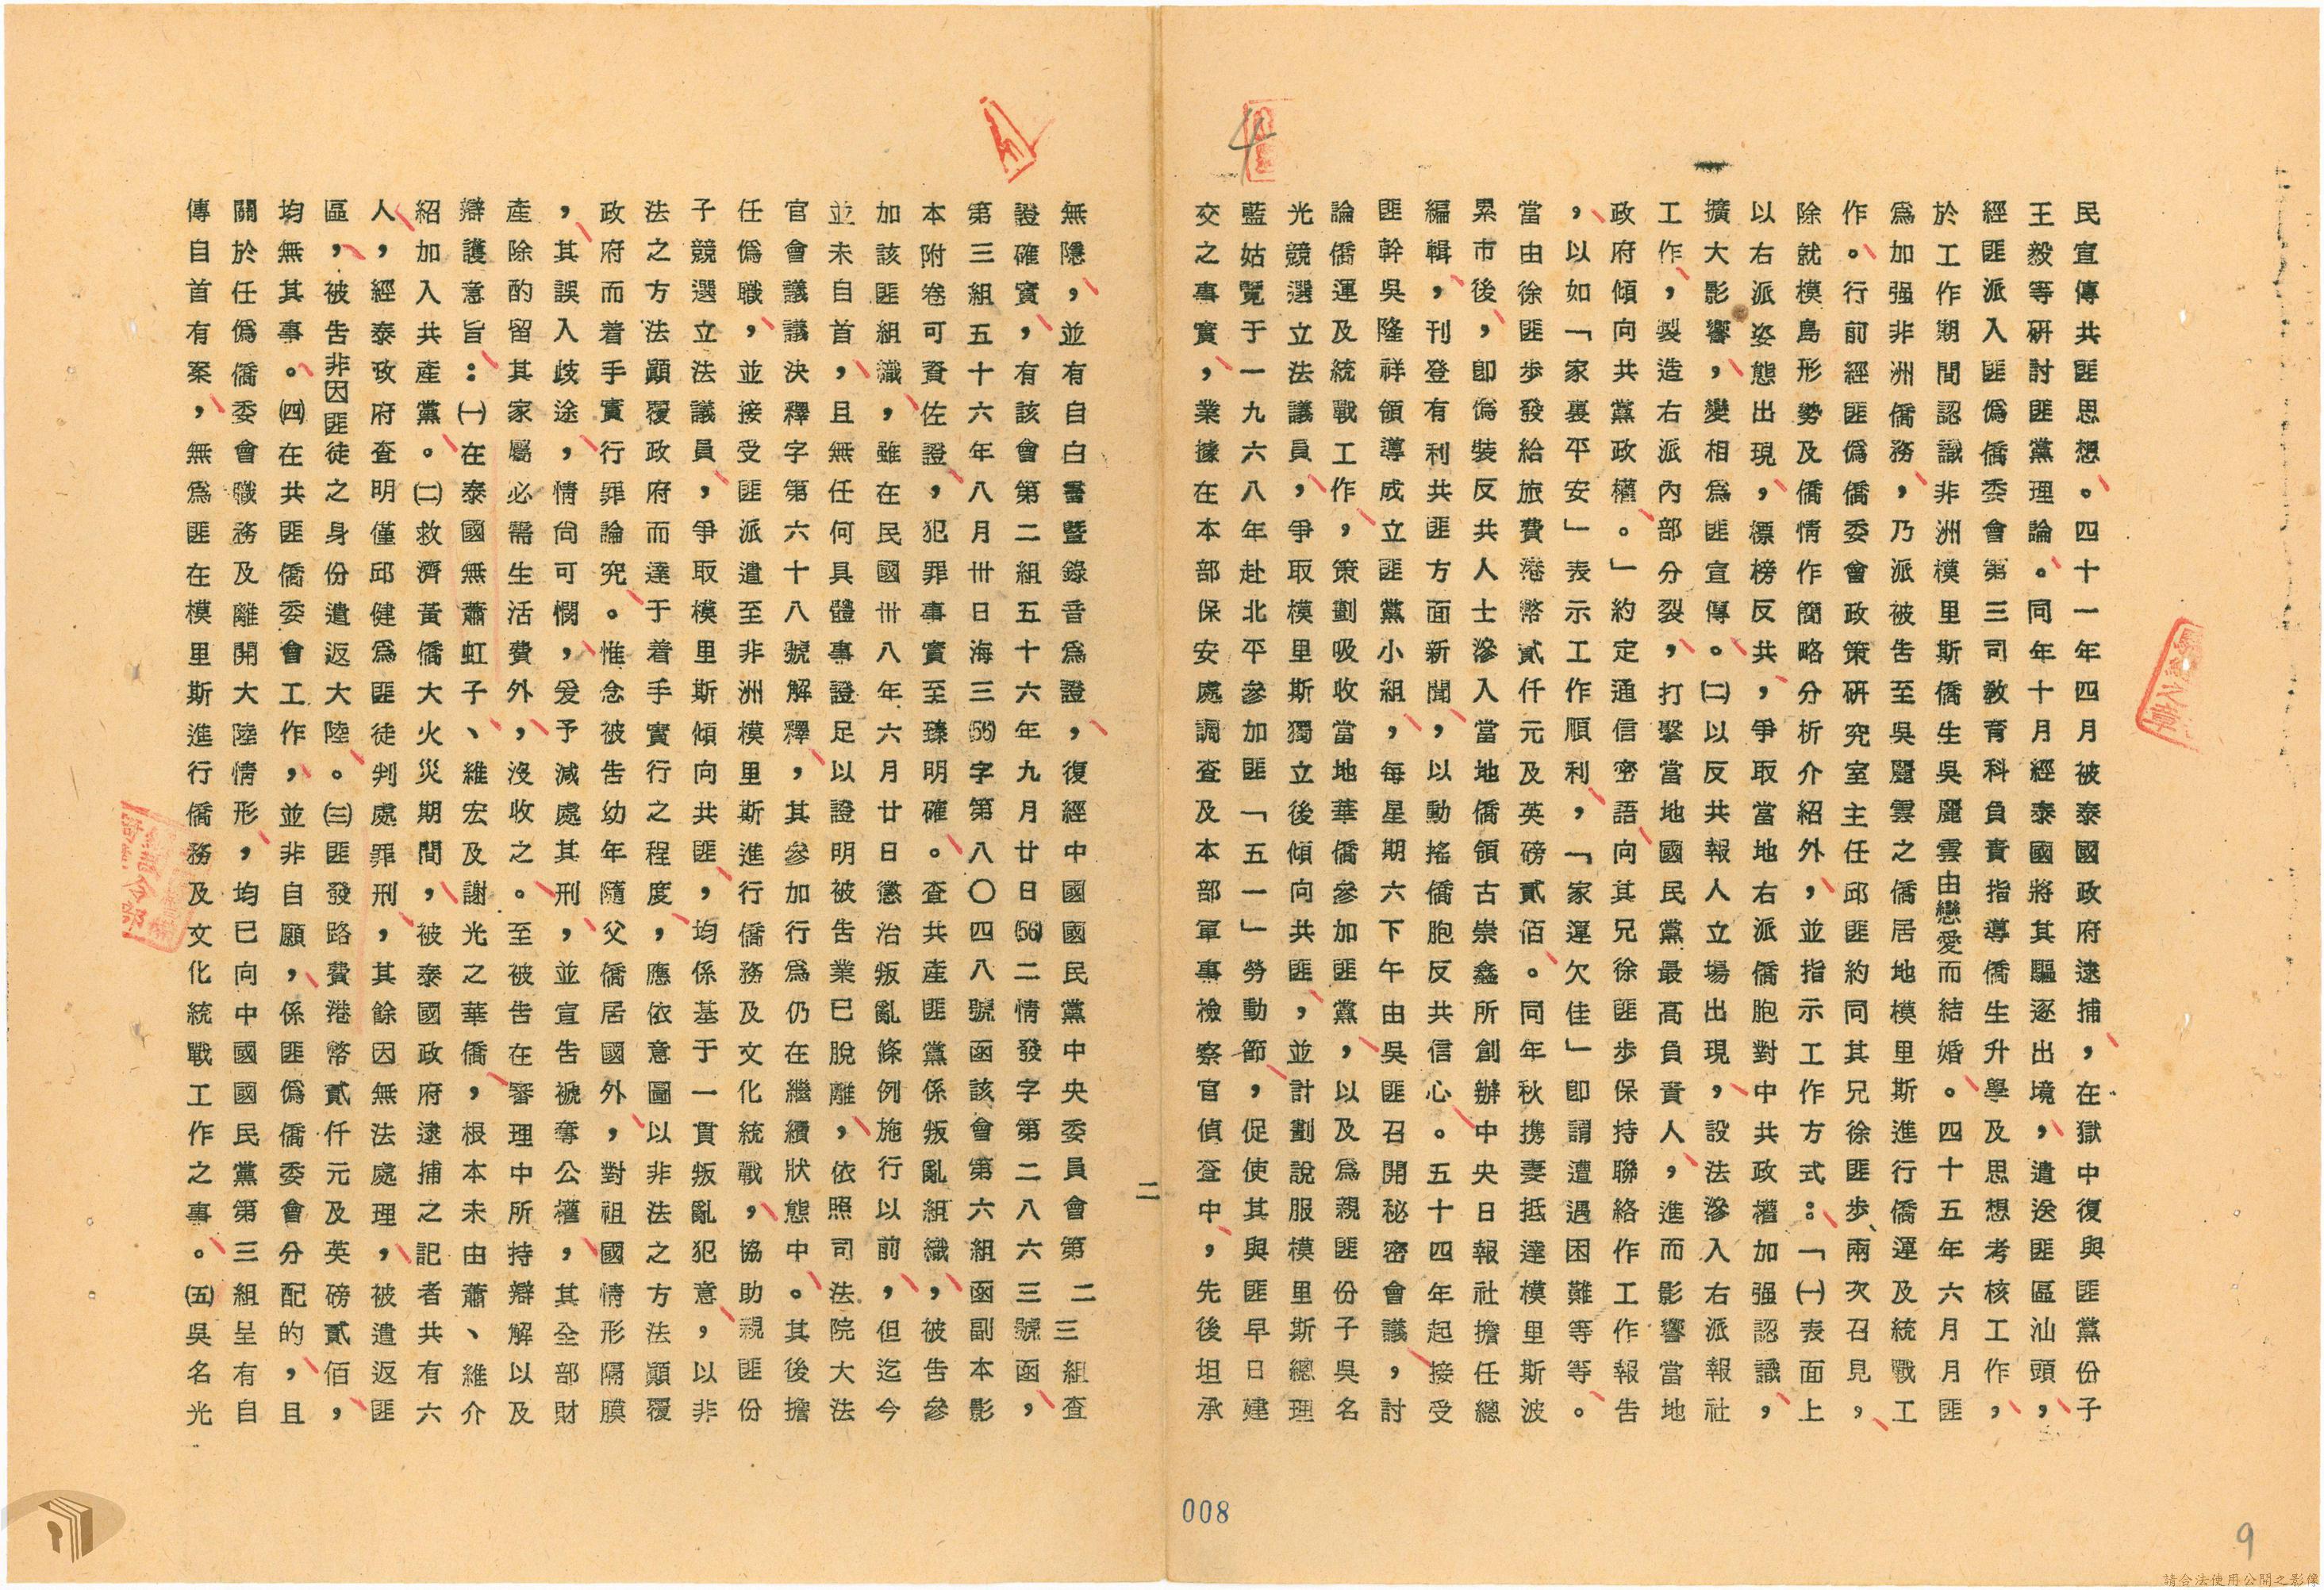 民宣傳共匪思想。四十一年四月被泰國政府逮捕，在獄中復與匪黨份子
王毅等硏討匪黨理論。同年十月經泰國將其驅逐出境，遣送匪區汕頭，
經匪派入匪僞僑委會第三司教育科負責指導僑生升學及思想考核工作，
於工作期間認識非洲模里斯僑生吳麗雲由戀愛而結婚。四十五年六月月匪
爲加强非洲僑務，乃派被告至吳麗雲之僑居地模里斯進行僑運及統戰工
作。行前經匪僞僑委會政策硏究室主任邱匪約同其兄徐匪步、兩次召見，
除就模島形勢及僑情作簡略分析介紹外，並指示工作方式：「㈠表面上
以右派姿態出現，標榜反共，爭取當地右派僑胞對中共政權加强認識，
擴大影響，變相爲匪宣傳。㈡以反共報人立場出現，設法滲入右派報社
工作，製造右派內部分裂，打擊當地國民黨最高負責人，進而影響當地
政府傾向共黨政權。」約定通信密語向其兄徐匪步保持聯絡作工作報告
，以如「家裏平安」表示工作順利，「家運欠佳」即謂遭遇困難等等。
當由徐匪步發給旅費港幣貳仟元及英磅貳佰。同年秋携妻抵達模里斯波
累市後，即僞裝反共人士滲入當地僑領古崇鑫所創辦中央日報社擔任總
編輯，刊登有利共匪方面新聞，以動搖僑胞反共信心。五十四年起接受
匪幹吳隆祥領導成立匪黨小組，每星期六下午由吳匪召開秘密會議，討
論僑運及統戰工作，策劃吸收當地華僑參加匪黨，以及爲親匪份子吳名
光競選立法議員，爭取模里斯獨立後傾向共匪，並計劃說服模里斯總理
藍姑覽于一九六八年赴北平參加匪「五一」勞動節，促使其與匪早日建
交之事實，業據在本部保安處調查及本部軍事檢察官偵查中，先後坦承
二
無隱，並有自白書暨錄音爲證，復經中國國民黨中央委員會第二三組查
證確實，有該會第二組五十六年九月廿日(56)二情發字第二八六三號函，
第三組五十六年八月卅日海三(56)字第八〇四八號函該會第六組函副本影
本附卷可資佐證，犯罪事實至臻明確。查共產匪黨係叛亂組織，被告參
加該匪組織，雖在民國卅八年六月廿日懲治叛亂條例施行以前，但迄今
並未自首，且無任何具體事證足以證明被告業已脫離，依照司法院大法
官會議議決釋字第六十八號解釋，其參加行爲仍在繼續狀態中。其後擔
任僞職，並接受匪派遣至非洲模里斯進行僑務及文化統戰，協助親匪份
子競選立法議員，爭取模里斯傾向共匪，均係基于一貫叛亂犯意，以非
法之方法顚覆政府而達于着手實行之程度，應依意圖以非法之方法顚覆
政府而着手實行罪論究。惟念被告幼年隨父僑居國外，對祖國情形隔膜
，其誤入歧途，情尙可憫，爰予減處其刑，並宣告褫奪公權，其全部財
產除酌留其家屬必需生活費外，沒收之。至被告在審理中所持辯解以及
辯護意旨：㈠在泰國無蕭虹子、維宏及謝光之華僑，根本未由蕭、維介
紹加入共產黨。㈡救濟黃僑大火災期間，被泰國政府逮捕之記者共有六
人，經泰政府查明僅邱健爲匪徒判處罪刑，其餘因無法處理，被遣返匪
區，被告非因匪徒之身份遣返大陸。㈢匪發路費港幣貳仟元及英磅貳佰，
均無其事。㈣在共匪僑委會工作，並非自願，係匪僞僑委會分配的，且
關於任僞僑委會職務及離開大陸情形，均已向中國國民黨第三組呈有自
傳自首有案，無爲匪在模里斯進行僑務及文化統戰工作之事。㈤吳名光
008
9
請合法使用公開之影像